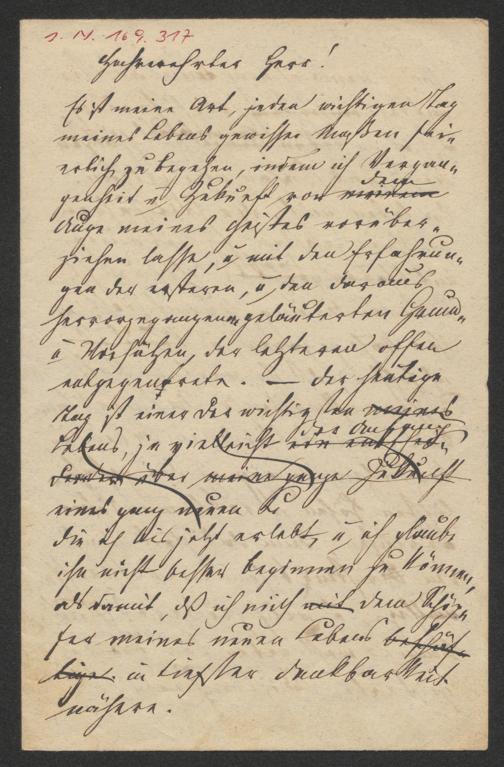 I. N. 169.317
Hochverehrter Herr!
Es ist meine Art, jeden wichtigen Tag
meines Lebens gewisser Maßen fei-
erlich zu begehen, indem ich Vergan-
genheit u Zukunft vor meinem dem
Auge meines Geistes vorüber-
ziehen lasse, u mit den Erfahrun-
gen der ersteren, u den daraus
hervorgegangenen geläuterten Grund-
u Vorsätzen, der letzteren offen
entgegentrete. — Der heutige
Tag ist einer der wichtigsten meines
Lebens, ja vielleicht der Anfang
ein entschei-
dender über meine ganze Zukunft
eines ganz neuen
die ich bis jetzt erlebt, u ich glaube
ihn nicht besser beginnen zu können,
als damit, dß ich mich mit dem Schöp-
fer meines neuen Lebens beschäf-
tige in tiefster Dankbarkeit
nähere.